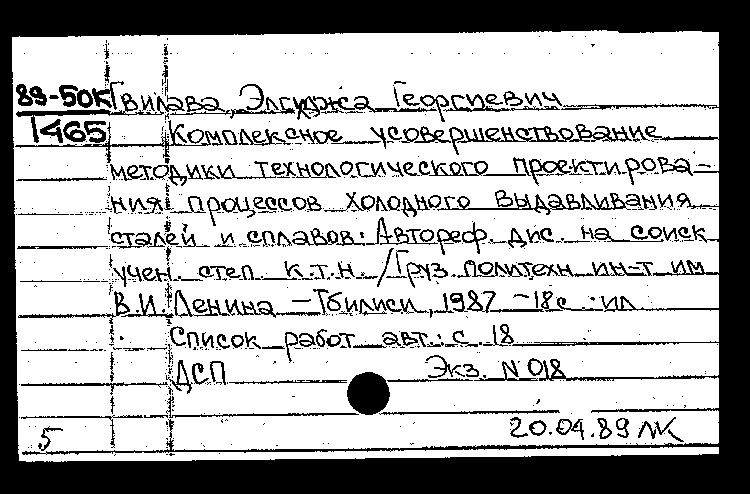 89-50К Гвилава, Элгуджа Георгиевич
1465 Комплексное усовершенствование
методики технологического проектирова-
ния процессов холодного выдавливания
сталей и сплавов: Автореф. дис. на соиск
учен. степ. к.т.н. / Груз. политехн ин-т им
В.И. Ленина - Тбилиси, 1987 - 18с : ил
Список работ авт.: с. 18
ДСП Экз. N 018
5 20.04.89 ЛК